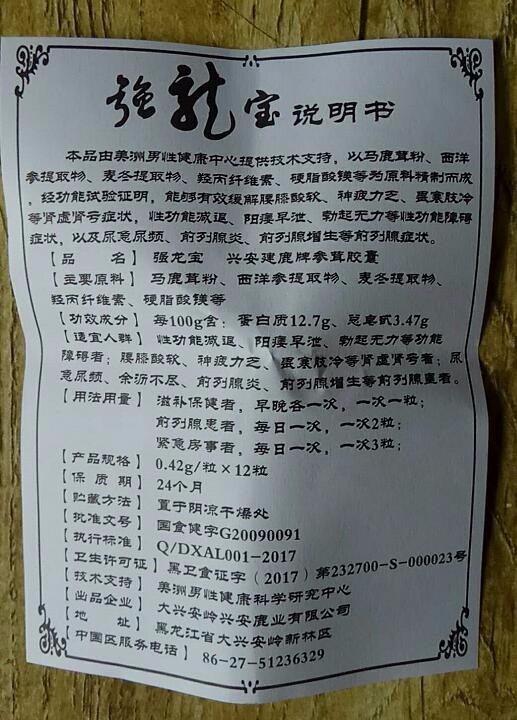 强龙宝 说明书
本品由美洲男性健康中心提供技术支持，以马鹿茸粉、西洋
参提取物、麦冬提取物、羟丙纤维素、硬脂酸镁等为原料精制而成
，经功能试验证明，能够有效缓解腰膝酸软、神疲力乏、畏寒肢冷
等肾虚肾亏症状，性功能减退、阳痿早泄、勃起无力等性功能障碍
症状，以及尿急尿频、前列腺炎、前列腺增生等前列腺症状。
【品 名】 强龙宝 兴安建鹿牌参茸胶囊
【主要原料】 马鹿茸粉、西洋参提取物、麦冬提取物、
羟丙纤维素、硬脂酸镁等
【功效成分】 每100g含：蛋白质12.7g、总皂甙3.47g
【适宜人群】 性功能减退、阳痿早泄、勃起无力等功能
障碍者；腰膝酸软、神疲力乏、畏寒肢冷等肾虚肾亏者；尿
急尿频、余沥不尽、前列腺炎、前列腺增生等前列腺患者。
【用法用量】 滋补保健者，早晚各一次，一次一粒；
前列腺患者，每日一次，一次2粒；
紧急房事者，每日一次，一次3粒；
【产品规格】 0.42g/粒×12粒
【保 质 期】 24个月
【贮藏方法】 置于阴凉干燥处
【批准文号】 国食健字G20090091
【执行标准】 Q/DXAL001-2017
【卫生许可证】 黑卫食证字（2017）第232700-S-000023号
【技术支持】 美洲男性健康科学研究中心
【出品企业】 大兴安岭兴安鹿业有限公司
【地 址】 黑龙江省大兴安岭新林区
【中国区服务电话】 86-27-51236329